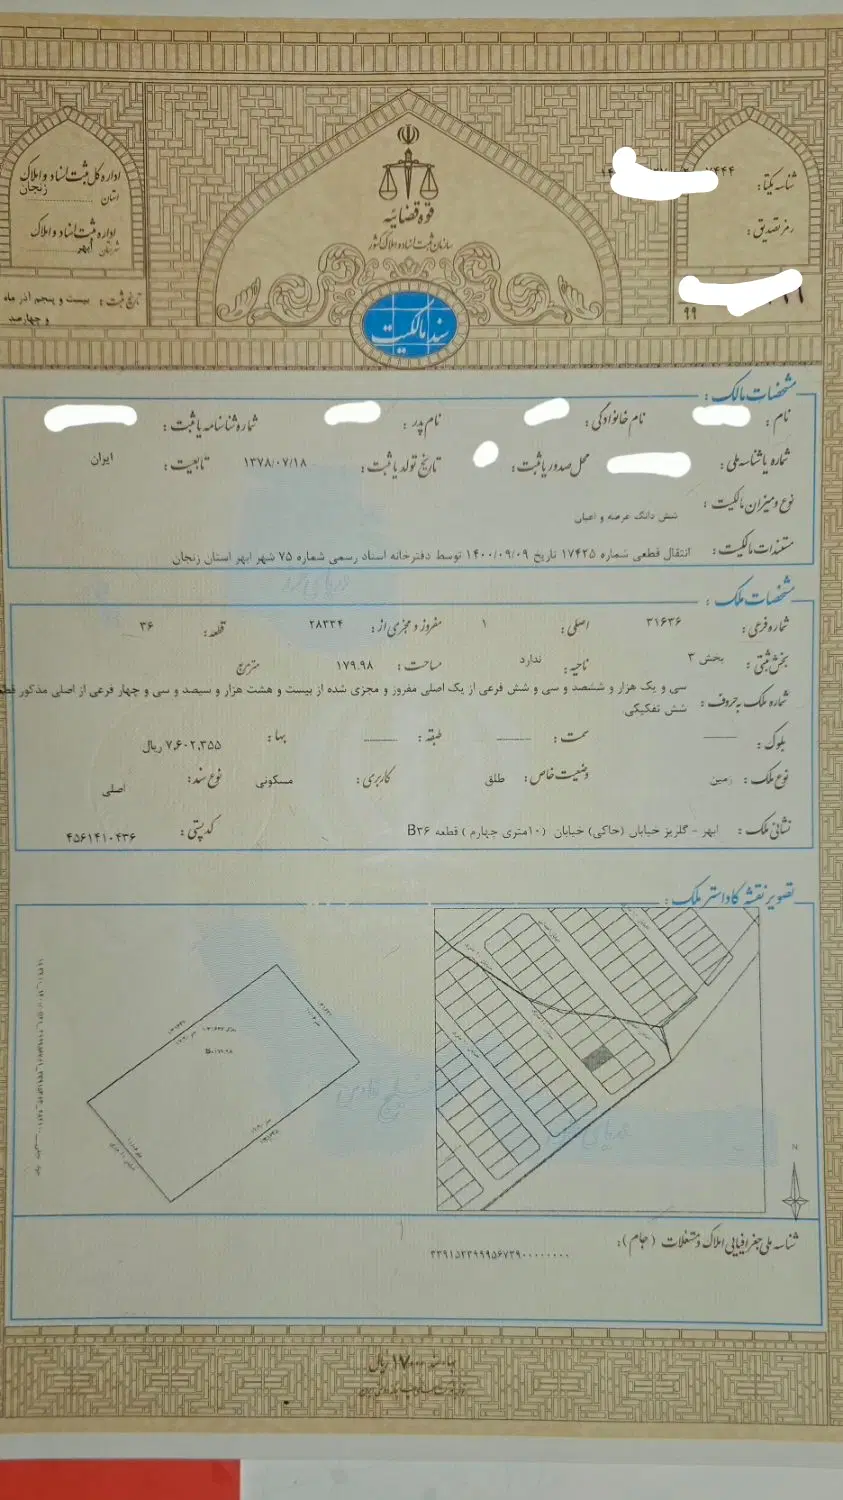 اداره کل ثبت اسناد و املاک
استان زنجان
اداره ثبت اسناد و املاک
شهرستان ابهر
تاریخ ثبت : بیست و پنجم آذر ماه
و چهارصد
قوه قضائیه
سازمان ثبت اسناد و املاک کشور
سند مالکیت
شناسه یکتا :
رمز تصدیق :
۹۹
مشخصات مالک :
نام : نام خانوادگی : نام پدر : شماره شناسنامه یا ثبت :
شماره یا شناسه ملی : محل صدور یا ثبت : تاریخ تولد یا ثبت : ۱۳۷۸/۰۷/۱۸ تابعیت : ایران
نوع و میزان مالکیت : شش دانگ عرصه و اعیان
مستندات مالکیت : انتقال قطعی شماره ۱۷۴۲۵ تاریخ ۱۴۰۰/۰۹/۰۹ توسط دفترخانه اسناد رسمی شماره ۷۵ شهر ابهر استان زنجان
مشخصات ملک :
شماره فرعی : ۳۱۶۳۶ اصلی : ۱ مفروز و مجزی از : ۲۸۳۳۴ قطعه : ۳۶
بخش ثبتی : بخش ۳ ناحیه : ندارد مساحت : ۱۷۹.۹۸ مترمربع
شماره ملک به حروف : سی و یک هزار و ششصد و سی و شش فرعی از یک اصلی مفروز و مجزی شده از بیست و هشت هزار و سیصد و سی و چهار فرعی از اصلی مذکور
شش تفکیکی
بلوک : سمت : طبقه : بها : ۷,۶۰۲,۳۵۵ ریال
نوع ملک : زمین وضعیت خاص : طلق کاربری : مسکونی نوع سند : اصلی
نشانی ملک : ابهر - گلریز خیابان (خاکی) خیابان (۱۰متری چهارم ) قطعه B۳۶ کدپستی : ۴۵۶۱۴۱۰۴۳۶
تصویر نقشه کاداستر ملک :
N
شناسه ملی جغرافیایی املاک و مستغلات (جام) :